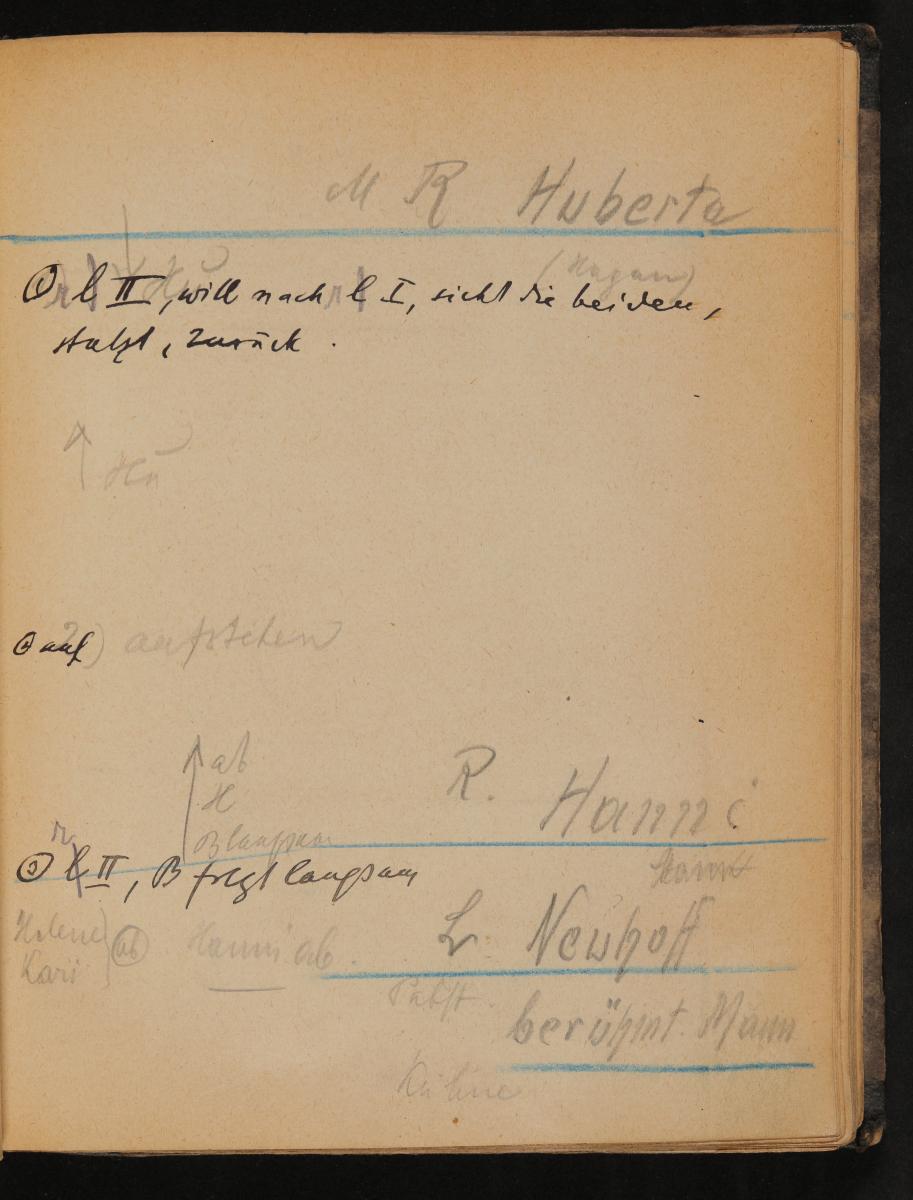 M R Huberta
Hu
(Hagen)
① l II, will nach l I, sieht die beiden,
stutzt, zurück.
Hu
② auf
2) aufstehen
ab
H
B langsam
R. Hanni
r
③ l II, B folgt langsam
Helene
Kari
ab
Hanni ab.
L. Neuhoff
Pabst.
berühmt. Mann
Kühne